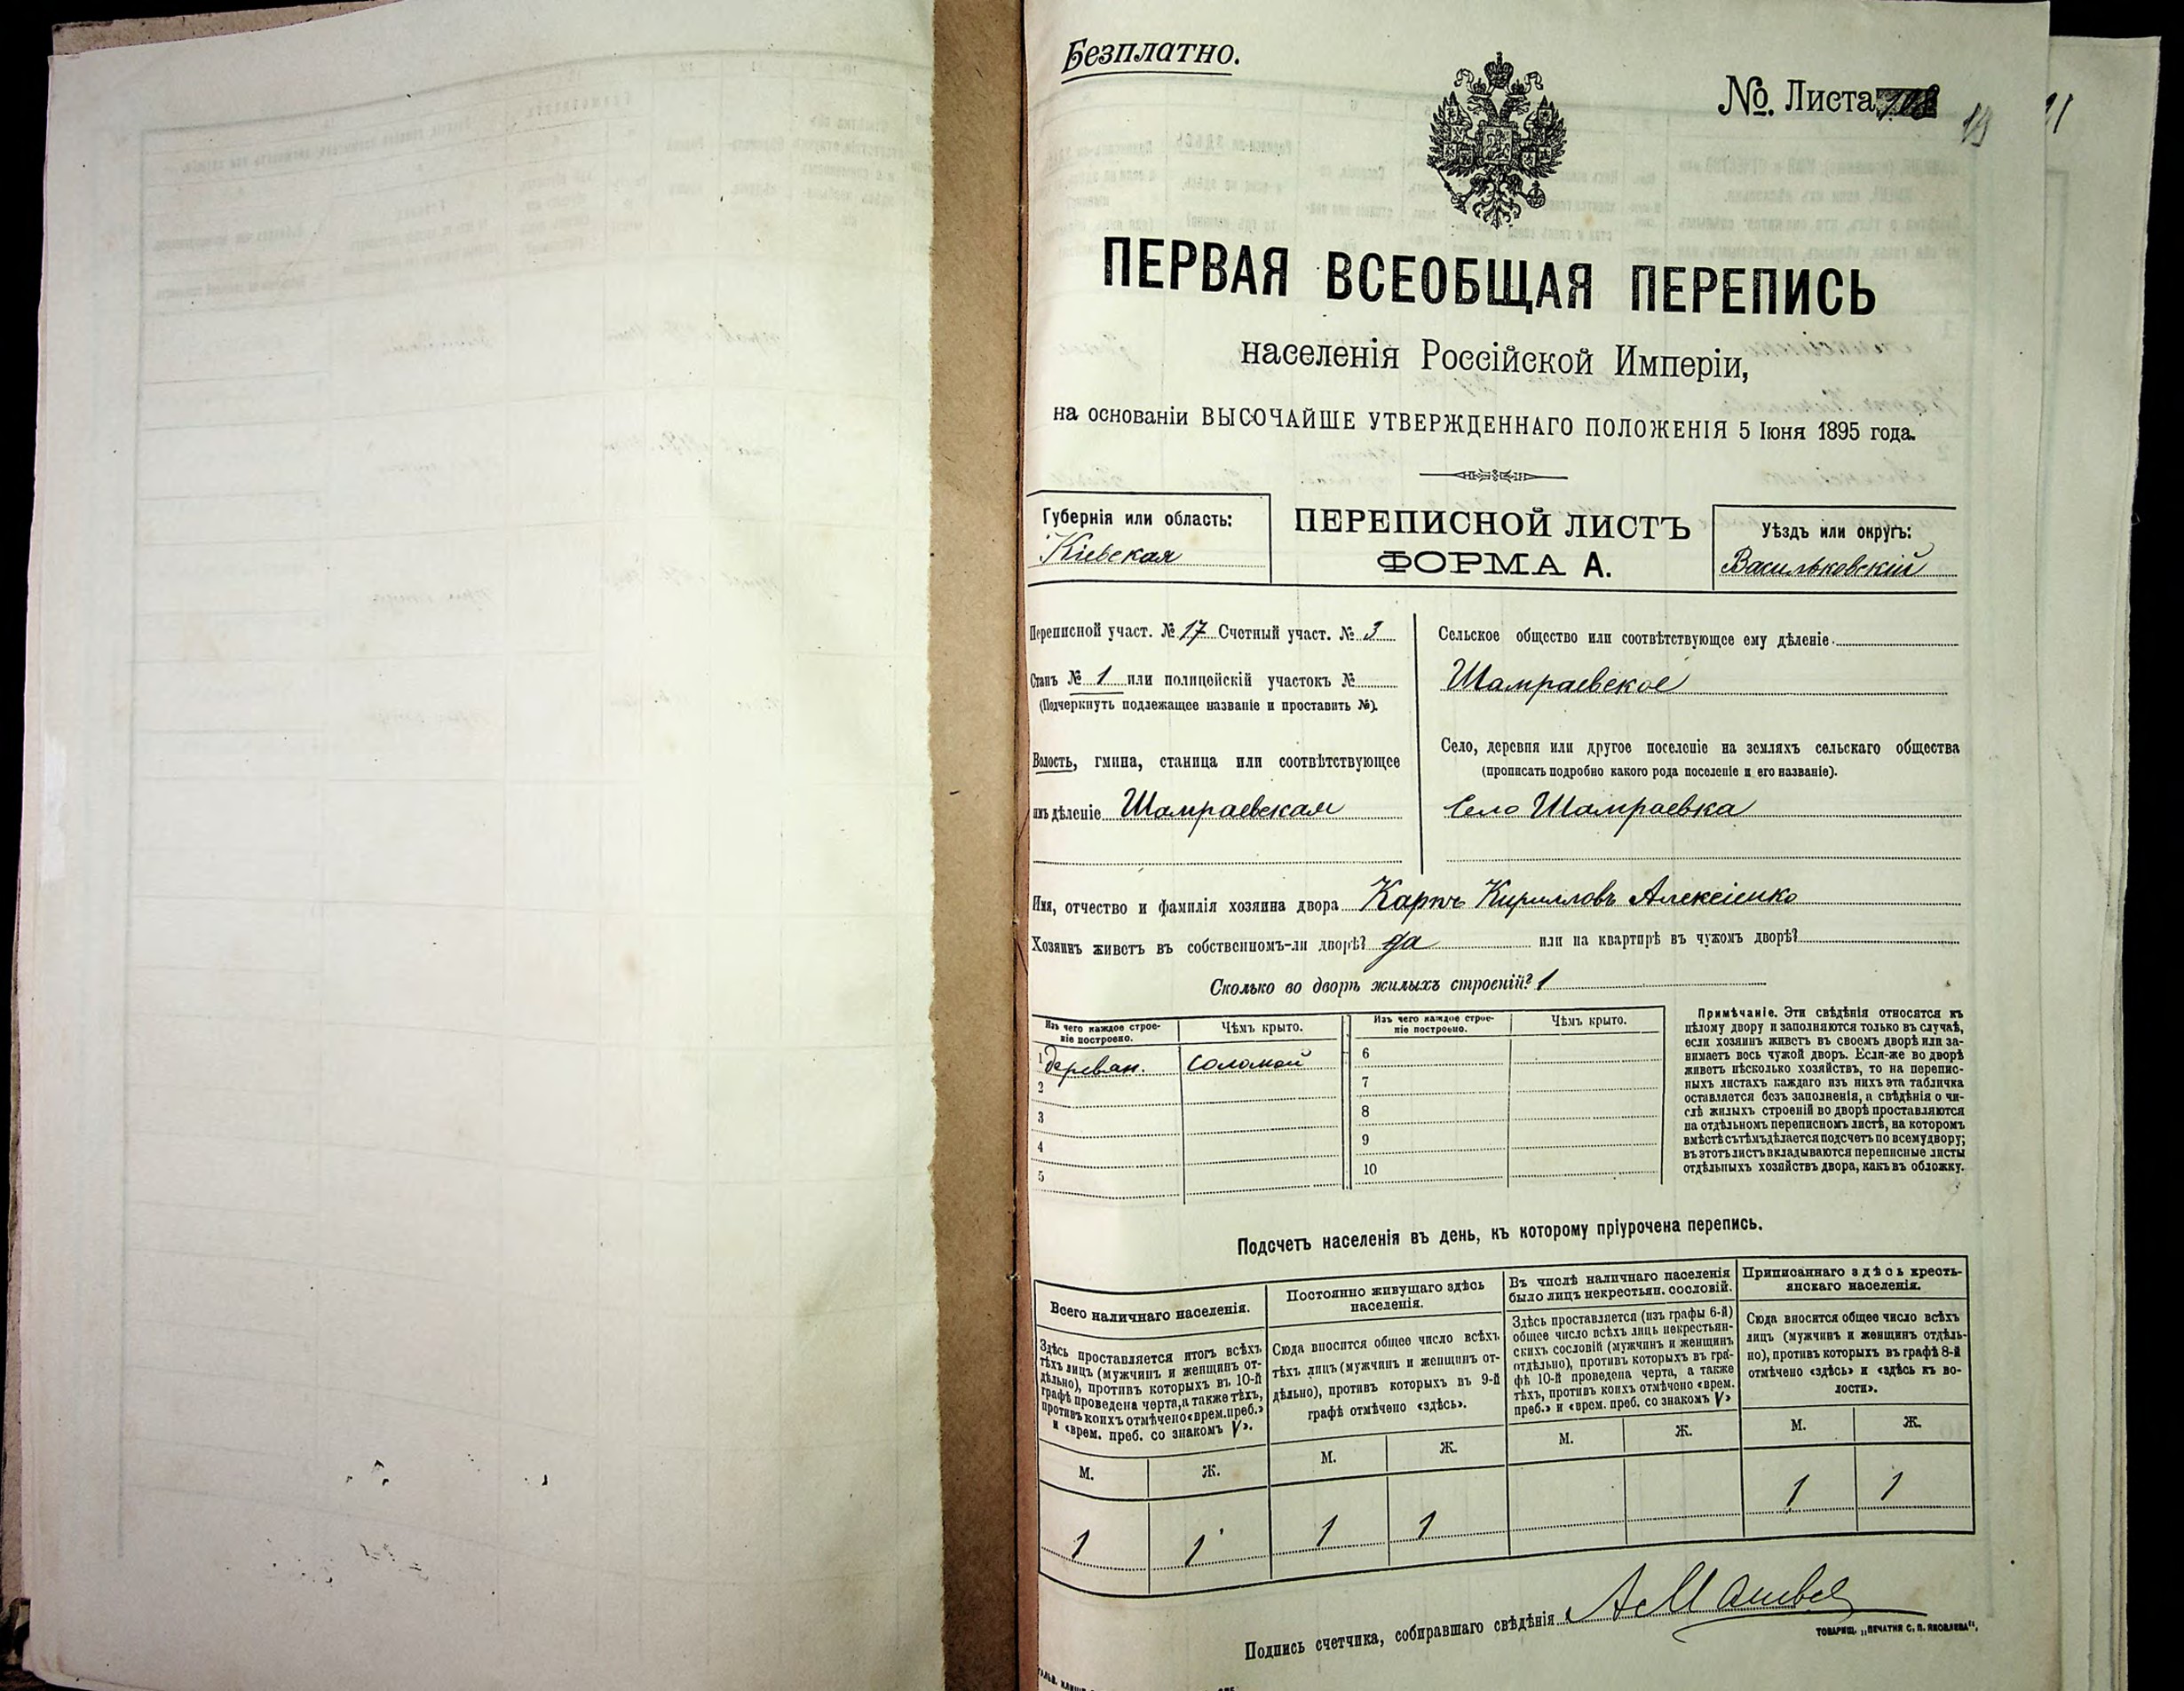 Безплатно.
№ Листа
19
ПЕРВАЯ ВСЕОБЩАЯ ПЕРЕПИСЬ
населенія Россійской Имперіи,
на основаніи ВЫСОЧАЙШЕ УТВЕРЖДЕННАГО ПОЛОЖЕНІЯ 5 Іюня 1895 года.
Губернія или область:
Кіевская
ПЕРЕПИСНОЙ ЛИСТЪ
ФОРМА А.
Уѣздъ или округъ:
Васильковскій
Переписной участ. № 17 Счетный участ. № 3
Станъ № 1 или полицейскій участокъ №
(Подчеркнуть подлежащее названіе и проставить №).
Волость, гмина, станица или соотвѣтствующее
имъ дѣленіе Шамраевская
Сельское общество или соотвѣтствующее ему дѣленіе
Шамраевское
Село, деревня или другое поселеніе на земляхъ сельскаго общества
(прописать подробно какого рода поселеніе и его названіе).
Село Шамраевка
Имя, отчество и фамилія хозяина двора Карпъ Кирилловъ Алексіенко
Хозяинъ живетъ въ собственномъ-ли дворѣ? да или на квартирѣ въ чужомъ дворѣ?
Сколько во дворѣ жилыхъ строеній? 1
Изъ чего каждое строе-
ніе построено.
Чѣмъ крыто.
Изъ чего каждое строе-
ніе построено.
Чѣмъ крыто.
1 деревян. соломой
2
3
4
5
6
7
8
9
10
Примѣчаніе. Эти свѣдѣнія относятся къ
цѣлому двору и заполняются только въ случаѣ,
если хозяинъ живетъ въ своемъ дворѣ или за-
нимаетъ весь чужой дворъ. Если-же во дворѣ
живетъ нѣсколько хозяйствъ, то на перепис-
ныхъ листахъ каждаго изъ нихъ эта табличка
оставляется безъ заполненія, а свѣдѣнія о чи-
слѣ жилыхъ строеній во дворѣ проставляются
на отдѣльномъ переписномъ листѣ, на которомъ
вмѣстѣ съ тѣмъ дѣлается подсчетъ по всему двору;
въ этотъ листъ вкладываются переписные листы
отдѣльныхъ хозяйствъ двора, какъ въ обложку.
Подсчетъ населенія въ день, къ которому пріурочена перепись.
Всего наличнаго населенія.
Здѣсь проставляется итогъ всѣхъ
тѣхъ лицъ (мужчинъ и женщинъ от-
дѣльно), противъ которыхъ въ 10-й
графѣ проведена черта, а также тѣхъ,
противъ коихъ отмѣчено «врем. преб.»
и «врем. преб. со знакомъ V».
М.
Ж.
1
1
Постоянно живущаго здѣсь
населенія.
Сюда вносится общее число всѣхъ
тѣхъ лицъ (мужчинъ и женщинъ от-
дѣльно), противъ которыхъ въ 9-й
графѣ отмѣчено «здѣсь».
М.
Ж.
1
1
Въ числѣ наличнаго населенія
было лицъ некрестьян. сословій.
Здѣсь проставляется (изъ графы 6-й)
общее число всѣхъ лицъ некрестьян-
скихъ сословій (мужчинъ и женщинъ
отдѣльно), противъ которыхъ въ гра-
фѣ 10-й проведена черта, а также
тѣхъ, противъ коихъ отмѣчено «врем.
преб.» и «врем. преб. со знакомъ V»
М.
Ж.
Приписаннаго здѣсь кресть-
янскаго населенія.
Сюда вносится общее число всѣхъ
лицъ (мужчинъ и женщинъ отдѣль-
но), противъ которыхъ въ графѣ 8-й
отмѣчено «здѣсь» и «здѣсь къ во-
лости».
М.
Ж.
1
1
Подпись счетчика, собиравшаго свѣдѣнія
ТОВАРИЩ. „ПЕЧАТНЯ С. П. ЯКОВЛЕВА“.